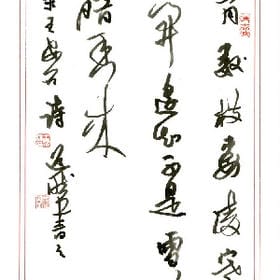 角数枝梅凌寒
开遥知不是雪
暗香来
宋王安石诗 书